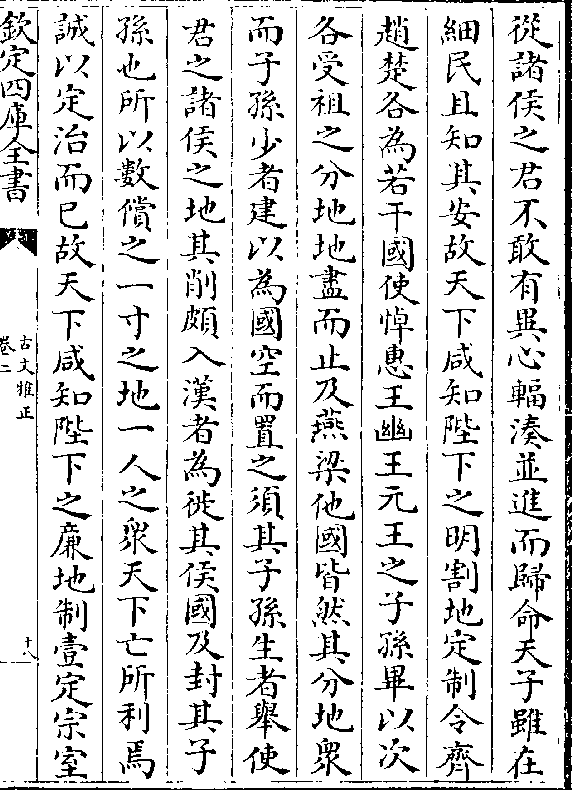 從諸侯之君不敢有異心輻湊並進而歸命天子雖在
細民且知其安故天下咸知陛下之明割地定制令齊
趙楚各為若干國使悼惠王幽王元王之子孫畢以次
各受祖之分地地盡而止及燕梁他國皆然其分地衆
而子孫少者建以為國空而置之須其子孫生者舉使
君之諸侯之地其削頗入漢者為徙其侯國及封其子
孫也所以數償之一寸之地一人之衆天下亡所利焉
誠以定治而已故天下咸知陛下之廉地制壹定宗室
欽定四庫全書
古文雅正
卷二
十八